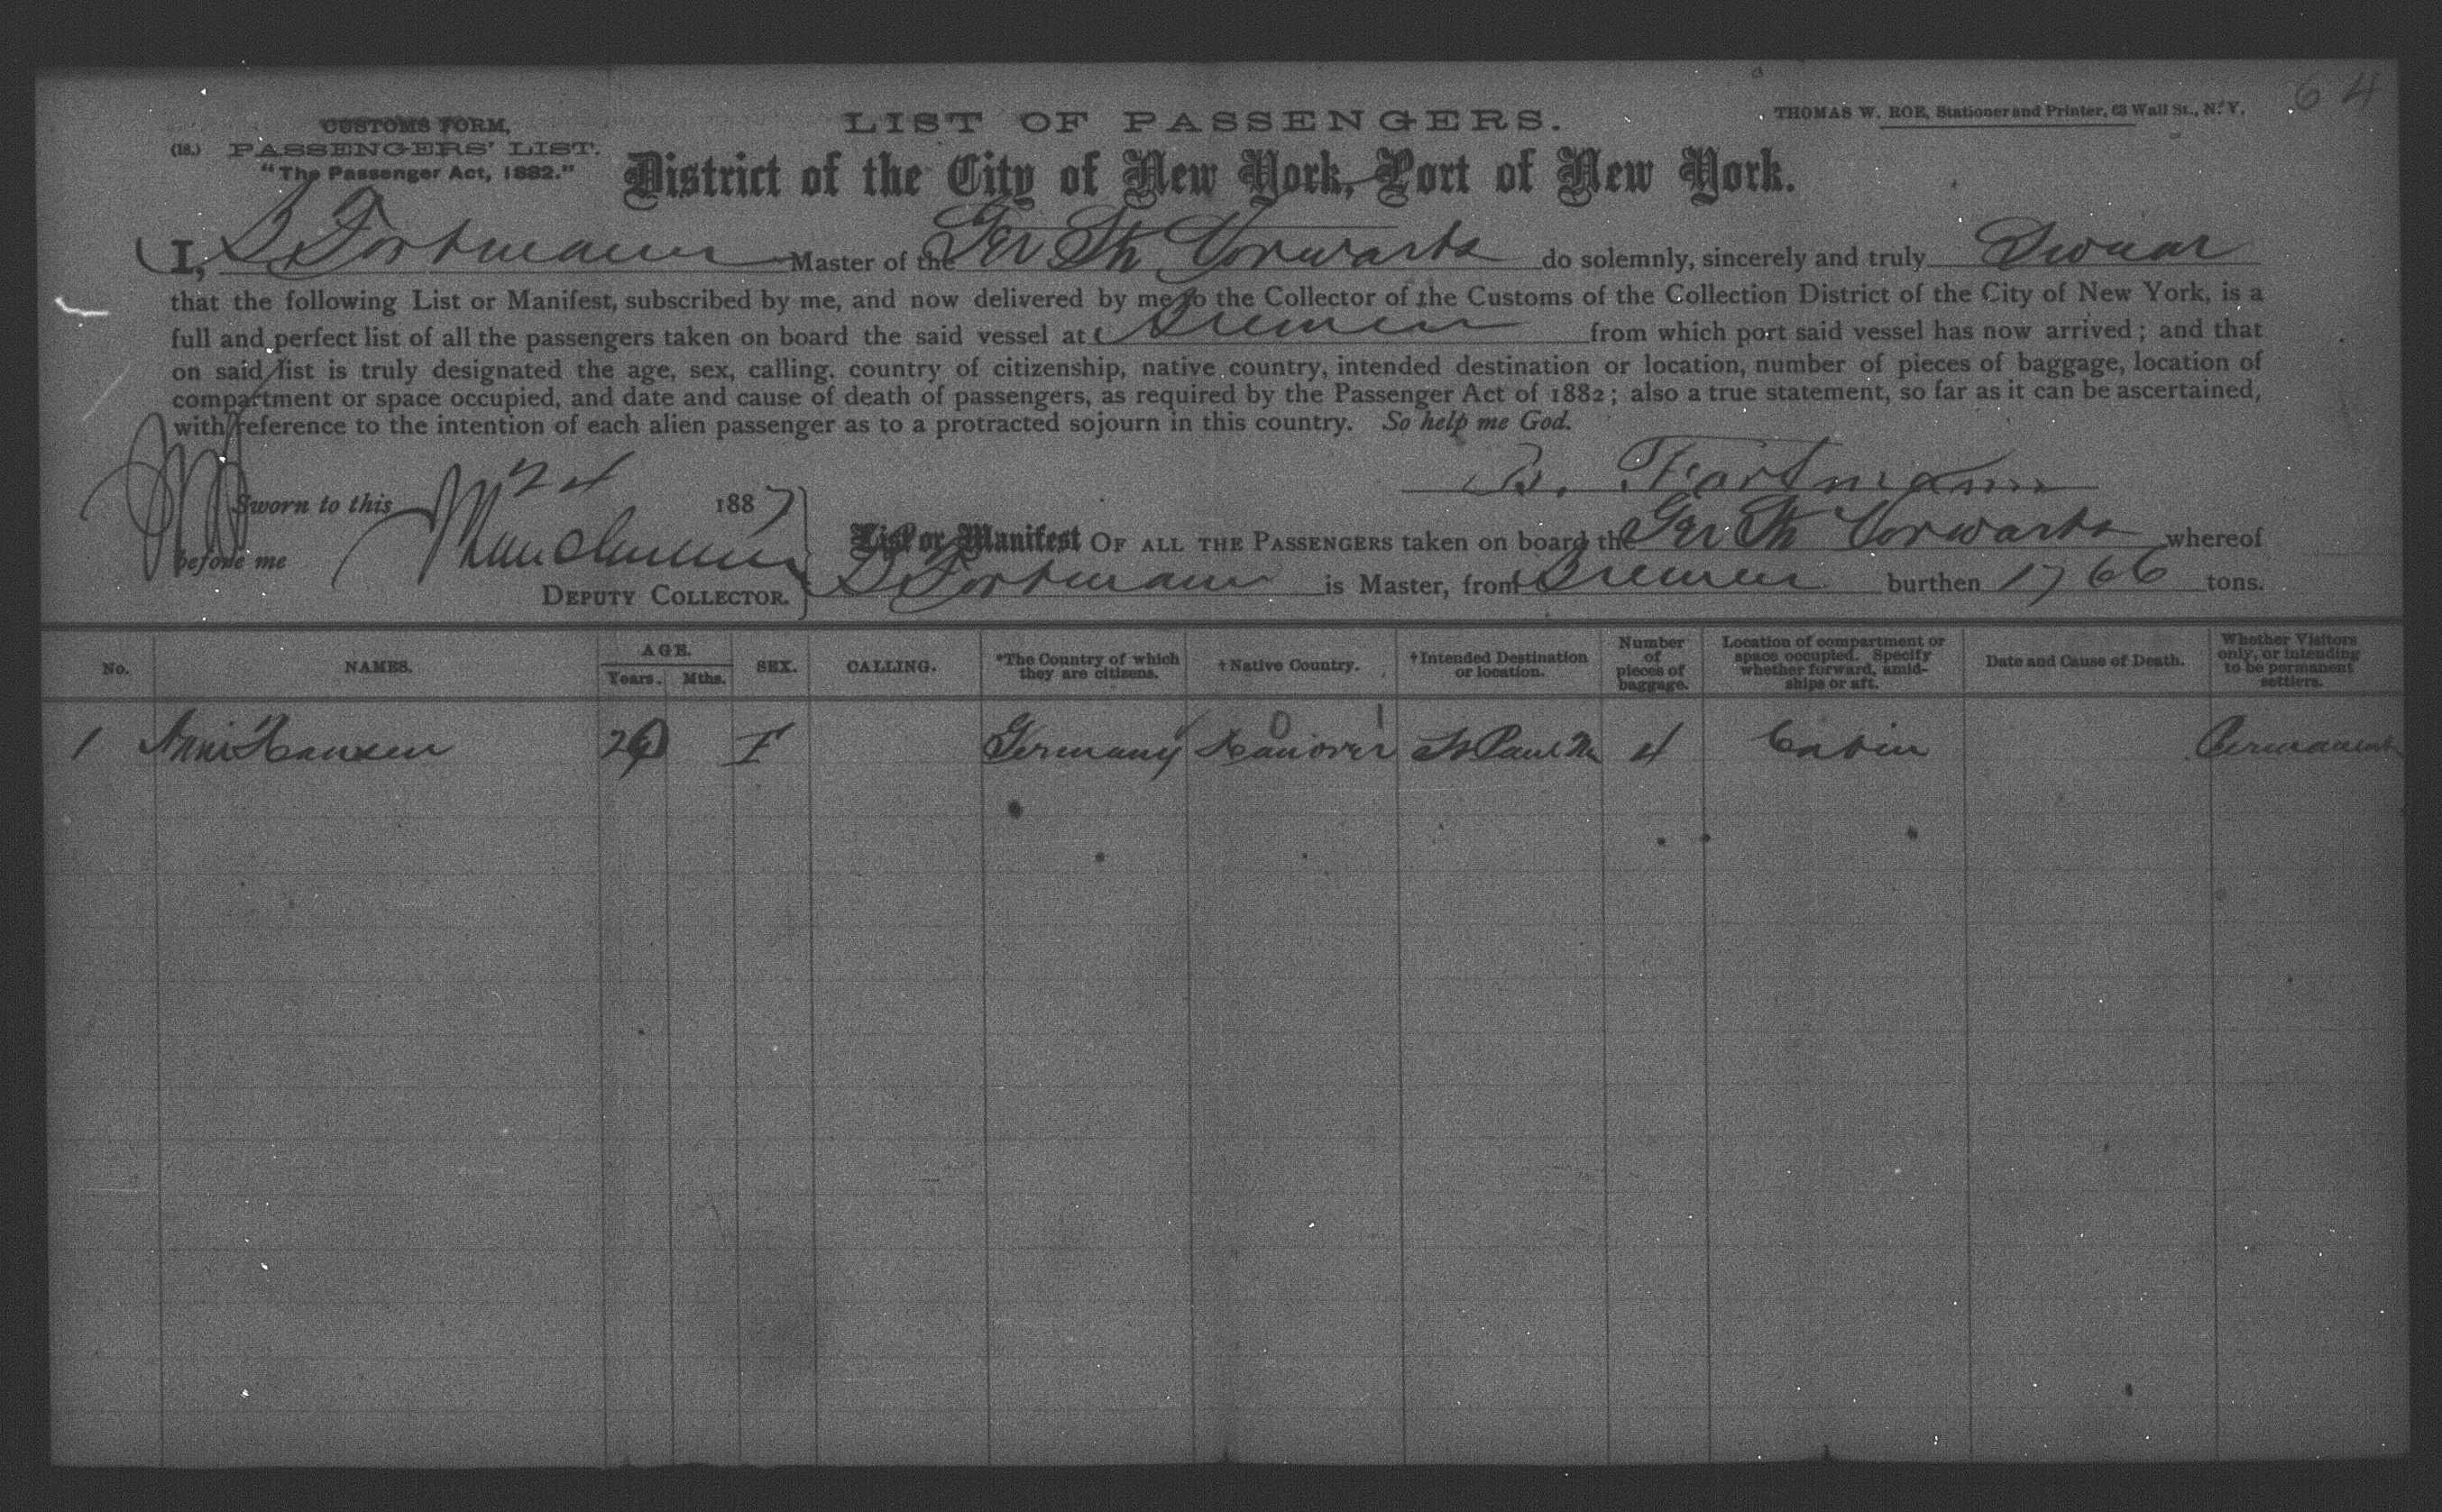 64
CUSTOMS FORM,
(18.) PASSENGERS' LIST.
"The Passenger Act, 1882."
LIST OF PASSENGERS.
THOMAS W. ROE, Stationer and Printer, 63 Wall St., N. Y.
District of the City of New York, Port of New York.
I, B Fortmann Master of the Ger Sh Vorwarts do solemnly, sincerely and truly Swear
that the following List or Manifest, subscribed by me, and now delivered by me to the Collector of the Customs of the Collection District of the City of New York, is a
full and perfect list of all the passengers taken on board the said vessel at Bremen from which port said vessel has now arrived; and that
on said list is truly designated the age, sex, calling, country of citizenship, native country, intended destination or location, number of pieces of baggage, location of
compartment or space occupied, and date and cause of death of passengers, as required by the Passenger Act of 1882; also a true statement, so far as it can be ascertained,
with reference to the intention of each alien passenger as to a protracted sojourn in this country. So help me God.
B. Fortmann
Sworn to this 24 1887
before me
DEPUTY COLLECTOR.
List or Manifest OF ALL THE PASSENGERS taken on board the Ger Sh Vorwarts whereof
B Fortmann is Master, from Bremen burthen 1766 tons.
No. NAMES. AGE. Years. Mths. SEX. CALLING. *The Country of which they are citizens. †Native Country. †Intended Destination or location. Number of pieces of baggage. Location of compartment or space occupied. Specify whether forward, amidships or aft. Date and Cause of Death. Whether Visitors only, or intending to be permanent settlers.
0 1
1 Hansen F Germany Hanover St Paul 4 Cabin Permanent